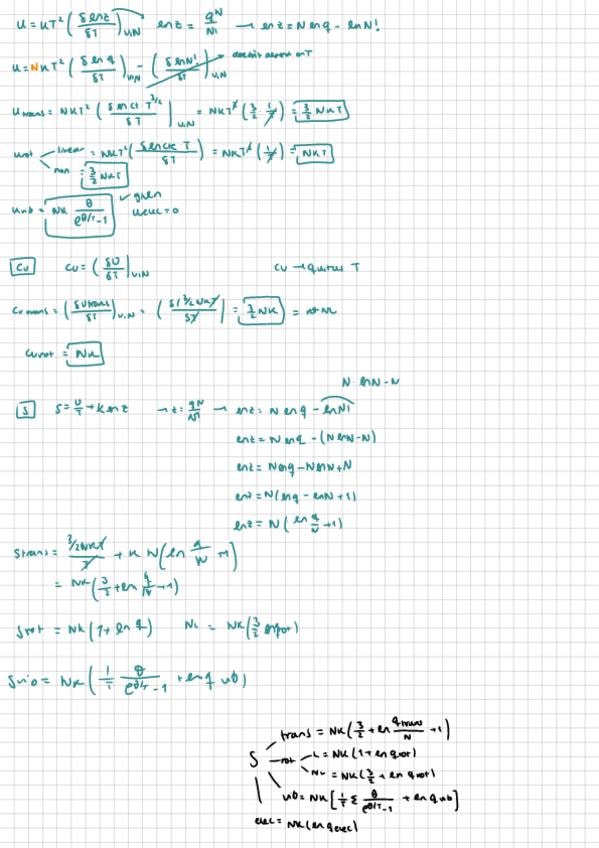 U = kT² (δlnz/δT)V,N lnz = q^N/N! → lnz = N lnq - lnN!
U = NkT² (δlnq/δT)V,N - (δlnN!/δT)V,N
Utrans = NkT² (δlnct T^3/2/δT)V,N = NkT² (3/2 1/T) = 3/2 NkT
Urot linear = NkT² (δlncte T/δT) = NkT² (1/T) = NkT
non = 3/2 NkT
Uvib = Nk θ/(e^θ/T - 1) ✓ given
Uelec = 0
Cv Cv = (δU/δT)V,N Cv → T
Cv trans = (δUtrans/δT)V,N = (δ(3/2 NkT)/δT) = 3/2 Nk
Cv rot = Nk
N lnN - N
S S = U/T + k lnz → z = q^N/N! → lnz = N lnq - lnN!
lnz = N lnq - (N lnN - N)
lnz = N lnq - N lnN + N
lnz = N(lnq - lnN + 1)
lnz = N (ln q/N + 1)
Strans = 3/2 NkT/T + k N (ln q/N + 1)
= Nk (3/2 + ln q/N + 1)
Srot = Nk (1 + lnq) NL = Nk (3/2 lnqrot)
Svib = Nk (1/T θ/(e^θ/T - 1) + lnq vib)
trans = Nk (3/2 + ln qtrans/N + 1)
S rot L = Nk (1 + lnqrot)
NL = Nk (3/2 + lnqrot)
vib = Nk [1/T Σ θ/(e^θ/T - 1) + lnqvib]
elec = Nk (lnqelec)